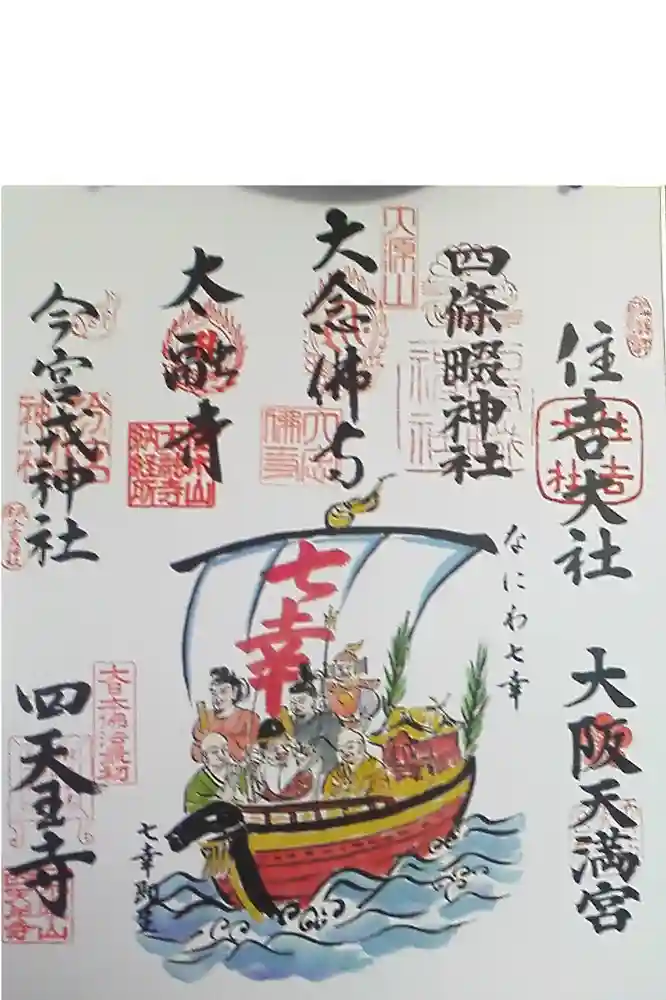 住吉大社
四條畷神社
大念佛寺
太融寺
今宮戎神社
大阪天満宮
四天王寺
なにわ七幸
七幸
大源山